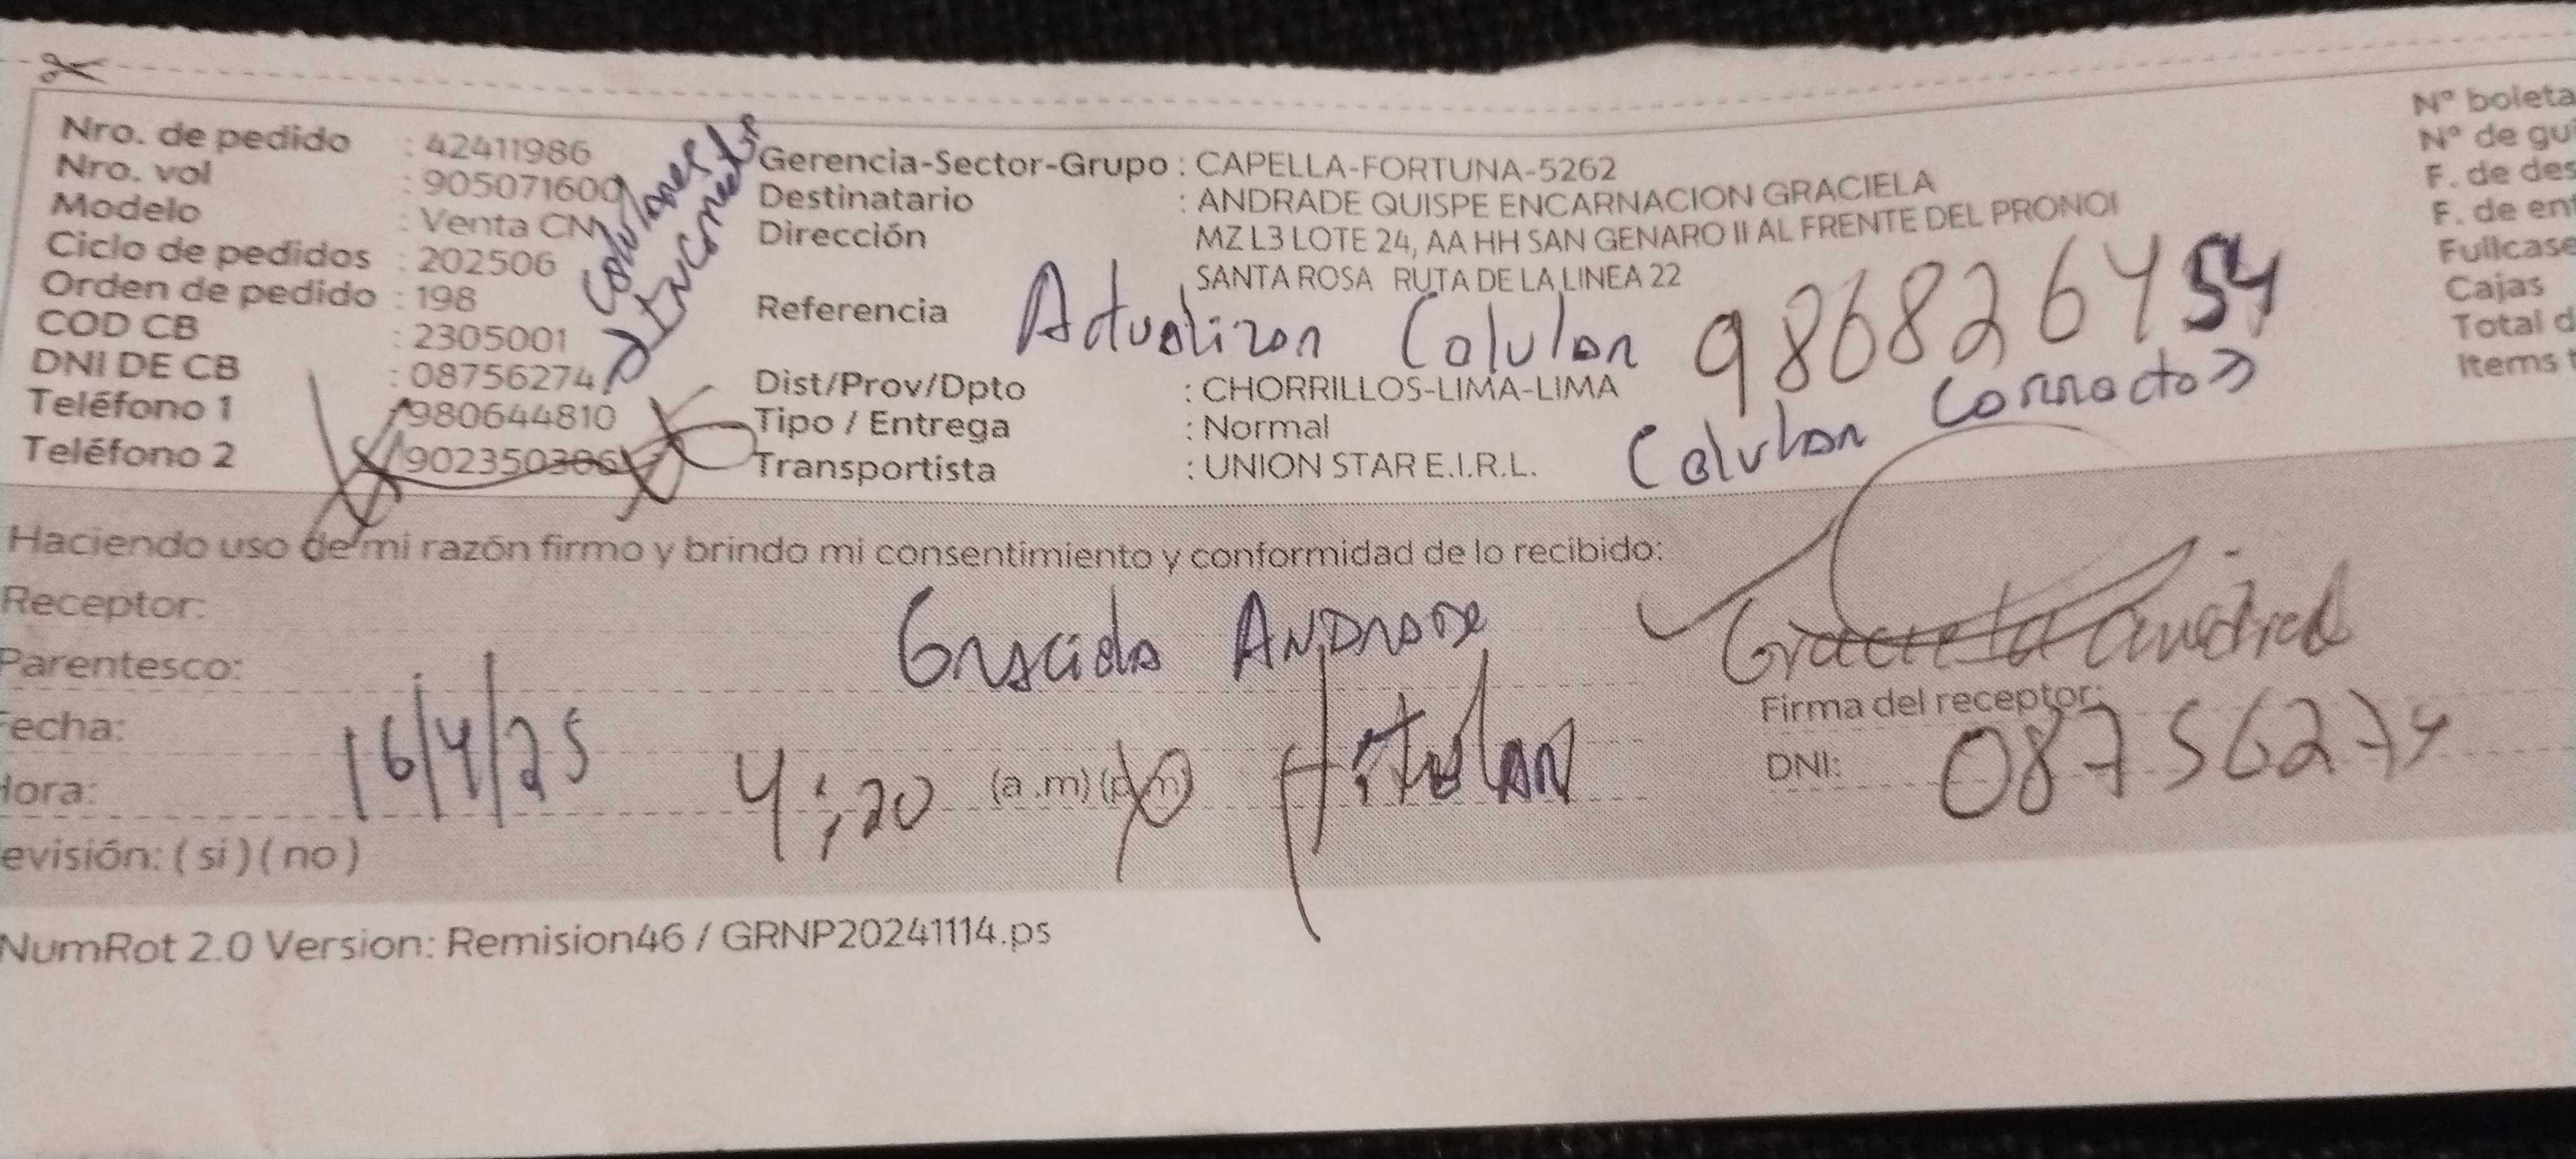 Nro. de pedido : 42411986
Nro. vol : 905071600
Modelo : Venta CN
Ciclo de pedidos : 202506
Orden de pedido : 198
COD CB : 2305001
DNI DE CB : 08756274
Teléfono 1 : 980644810
Teléfono 2 902350306
Gerencia-Sector-Grupo : CAPELLA-FORTUNA-5262
Destinatario : ANDRADE QUISPE ENCARNACION GRACIELA
Dirección MZ L3 LOTE 24, AA HH SAN GENARO II AL FRENTE DEL PRONOI
SANTA ROSA RUTA DE LA LINEA 22
Referencia
Actualizar Celular
Dist/Prov/Dpto : CHORRILLOS-LIMA-LIMA
Tipo / Entrega : Normal
Transportista : UNION STAR E.I.R.L.
Celular Correcto
N° boleta
N° de gui
F. de des
F. de ent
Fullcase
Cajas
Total d
Items
Haciendo uso de mi razón firmo y brindo mi consentimiento y conformidad de lo recibido:
Receptor: Graciela ANDRADE
Parentesco: titular
Fecha: 16/4/25
Hora: 4:20 (a.m) (p.m)
evisión: ( si ) ( no )
Graciela Andrad
Firma del receptor:
DNI: 08756274
NumRot 2.0 Version: Remision46 / GRNP20241114.ps